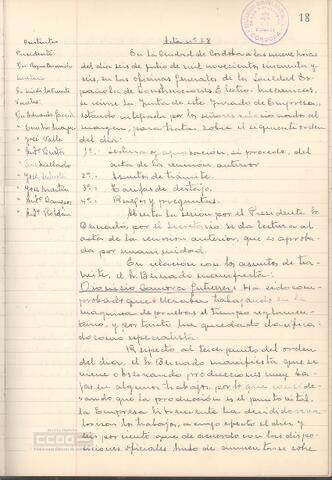 18
CÓRDOBA
Asistentes
Presidente
Secretario
Vocales:
Acta nº 38
En la Ciudad de Cordoba a las nueve horas
del dia seis de julio de mil novecientos cincuenta y
seis, en las oficinas generales de la Sociedad Es-
pañola de Construcciones Electro-Mecanicas,
se reune la Junta de este Jurado de Empresa,
estando integrada por los señores relacionados al
margen, para tratar sobre el siguiente orden
del dia:
1º.- Lectura y aprobación, si procede, del
acta de la reunión anterior
2º.- Asuntos de trámite.
3º.- Tarifas de destajo.
4º.- Ruegos y preguntas.
Abierta la sesion por el Presidente Sr.
Bernado, por el Secretario se da lectura al
acta de la reunion anterior, que es aproba-
da por unanimidad.
En relacion con los asuntos de tra-
mite, el Sr. Bernado manifiesta:
Dionisio Zamora Gutierrez ha sido com-
probado que llevaba trabajando en la
maquina de pruebas el tiempo reglamen-
tario, y por tanto ha quedado clasifica-
do como especialista.
Respecto al tercer punto del orden
del dia, el Sr. Bernado manifiesta que se
viene observando producciones muy
bajas en algunos trabajos, por lo que conside-
rando que la produccion es el punto vital,
la Empresa ha decidido
los trabajos, a cuyo efecto el diez y
seis por ciento que de acuerdo con las dispo-
siciones oficiales hubo de aumentarse sobre
CCOO